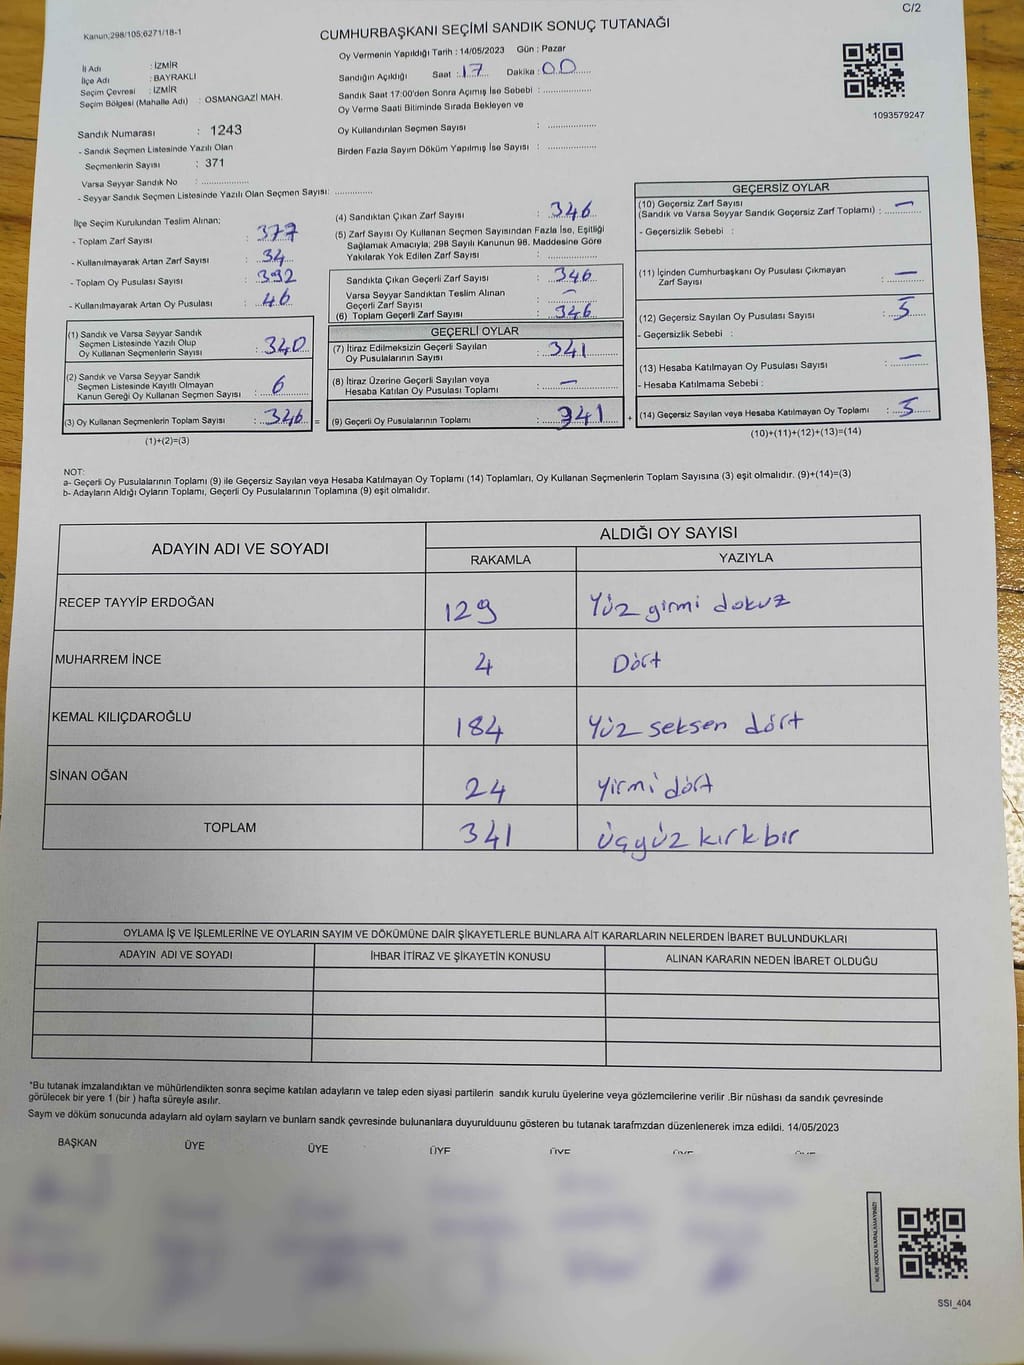 C/2
Kanun;298/105;6271/18-1
CUMHURBAŞKANI SEÇİMİ SANDIK SONUÇ TUTANAĞI
İl Adı : İZMİR
İlçe Adı : BAYRAKLI
Seçim Çevresi : İZMİR
Seçim Bölgesi (Mahalle Adı) : OSMANGAZİ MAH.
Sandık Numarası : 1243
- Sandık Seçmen Listesinde Yazılı Olan
Seçmenlerin Sayısı : 371
Varsa Seyyar Sandık No : ..................
- Seyyar Sandık Seçmen Listesinde Yazılı Olan Seçmen Sayısı: ..............
Oy Vermenin Yapıldığı Tarih : 14/05/2023 Gün : Pazar
Sandığın Açıldığı Saat : 17 Dakika : 00
Sandık Saat 17:00'den Sonra Açımış İse Sebebi : ..................
Oy Verme Saati Bitiminde Sırada Bekleyen ve
Oy Kullandırılan Seçmen Sayısı : ..................
Birden Fazla Sayım Döküm Yapılmış İse Sayısı : ..................
1093579247
İlçe Seçim Kurulundan Teslim Alınan;
- Toplam Zarf Sayısı : 377
- Kullanılmayarak Artan Zarf Sayısı : 34
- Toplam Oy Pusulası Sayısı : 392
- Kullanılmayarak Artan Oy Pusulası : 46
(1) Sandık ve Varsa Seyyar Sandık
Seçmen Listesinde Yazılı Olup
Oy Kullanan Seçmenlerin Sayısı : 340
(2) Sandık ve Varsa Seyyar Sandık
Seçmen Listesinde Kayıtlı Olmayan
Kanun Gereği Oy Kullanan Seçmen Sayısı : 6
(3) Oy Kullanan Seçmenlerin Toplam Sayısı : 346 =
(1)+(2)=(3)
(4) Sandıktan Çıkan Zarf Sayısı : 346
(5) Zarf Sayısı Oy Kullanan Seçmen Sayısından Fazla İse, Eşitliği
Sağlamak Amacıyla; 298 Sayılı Kanunun 98. Maddesine Göre
Yakılarak Yok Edilen Zarf Sayısı : ..................
Sandıkta Çıkan Geçerli Zarf Sayısı : 346
Varsa Seyyar Sandıktan Teslim Alınan
Geçerli Zarf Sayısı : –
(6) Toplam Geçerli Zarf Sayısı : 346
GEÇERLİ OYLAR
(7) İtiraz Edilmeksizin Geçerli Sayılan
Oy Pusulalarının Sayısı : 341
(8) İtiraz Üzerine Geçerli Sayılan veya
Hesaba Katılan Oy Pusulası Toplamı : –
(9) Geçerli Oy Pusulalarının Toplamı : 341 +
GEÇERSİZ OYLAR
(10) Geçersiz Zarf Sayısı
(Sandık ve Varsa Seyyar Sandık Geçersiz Zarf Toplamı) : –
- Geçersizlik Sebebi :
(11) İçinden Cumhurbaşkanı Oy Pusulası Çıkmayan
Zarf Sayısı : –
(12) Geçersiz Sayılan Oy Pusulası Sayısı : 5
- Geçersizlik Sebebi :
(13) Hesaba Katılmayan Oy Pusulası Sayısı : –
- Hesaba Katılmama Sebebi :
(14) Geçersiz Sayılan veya Hesaba Katılmayan Oy Toplamı : 5
(10)+(11)+(12)+(13)=(14)
NOT:
a- Geçerli Oy Pusulalarının Toplamı (9) ile Geçersiz Sayılan veya Hesaba Katılmayan Oy Toplamı (14) Toplamları, Oy Kullanan Seçmenlerin Toplam Sayısına (3) eşit olmalıdır. (9)+(14)=(3)
b- Adayların Aldığı Oyların Toplamı, Geçerli Oy Pusulalarının Toplamına (9) eşit olmalıdır.
ADAYIN ADI VE SOYADI ALDIĞI OY SAYISI
RAKAMLA YAZIYLA
RECEP TAYYİP ERDOĞAN 129 Yüz girmi dokuz
MUHARREM İNCE 4 Dört
KEMAL KILIÇDAROĞLU 184 Yüz seksen dört
SİNAN OĞAN 24 Yirmi dört
TOPLAM 341 üçyüz kırk bir
OYLAMA İŞ VE İŞLEMLERİNE VE OYLARIN SAYIM VE DÖKÜMÜNE DAİR ŞİKAYETLERLE BUNLARA AİT KARARLARIN NELERDEN İBARET BULUNDUKLARI
ADAYIN ADI VE SOYADI İHBAR İTİRAZ VE ŞİKAYETİN KONUSU ALINAN KARARIN NEDEN İBARET OLDUĞU
*Bu tutanak imzalandıktan ve mühürlendikten sonra seçime katılan adayların ve talep eden siyasi partilerin sandık kurulu üyelerine veya gözlemcilerine verilir .Bir nüshası da sandık çevresinde
görülecek bir yere 1 (bir ) hafta süreyle asılır.
Sayım ve döküm sonucunda adayların ald oylam saylarn ve bunlarn sandk çevresinde bulunanlara duyurulduunu gösteren bu tutanak tarafmzdan düzenlenerek imza edildi. 14/05/2023
BAŞKAN ÜYE ÜYE ÜYE ÜYE ÜYE ÜYE
KARE KODU KARALAMAYINIZ!
SSI_404